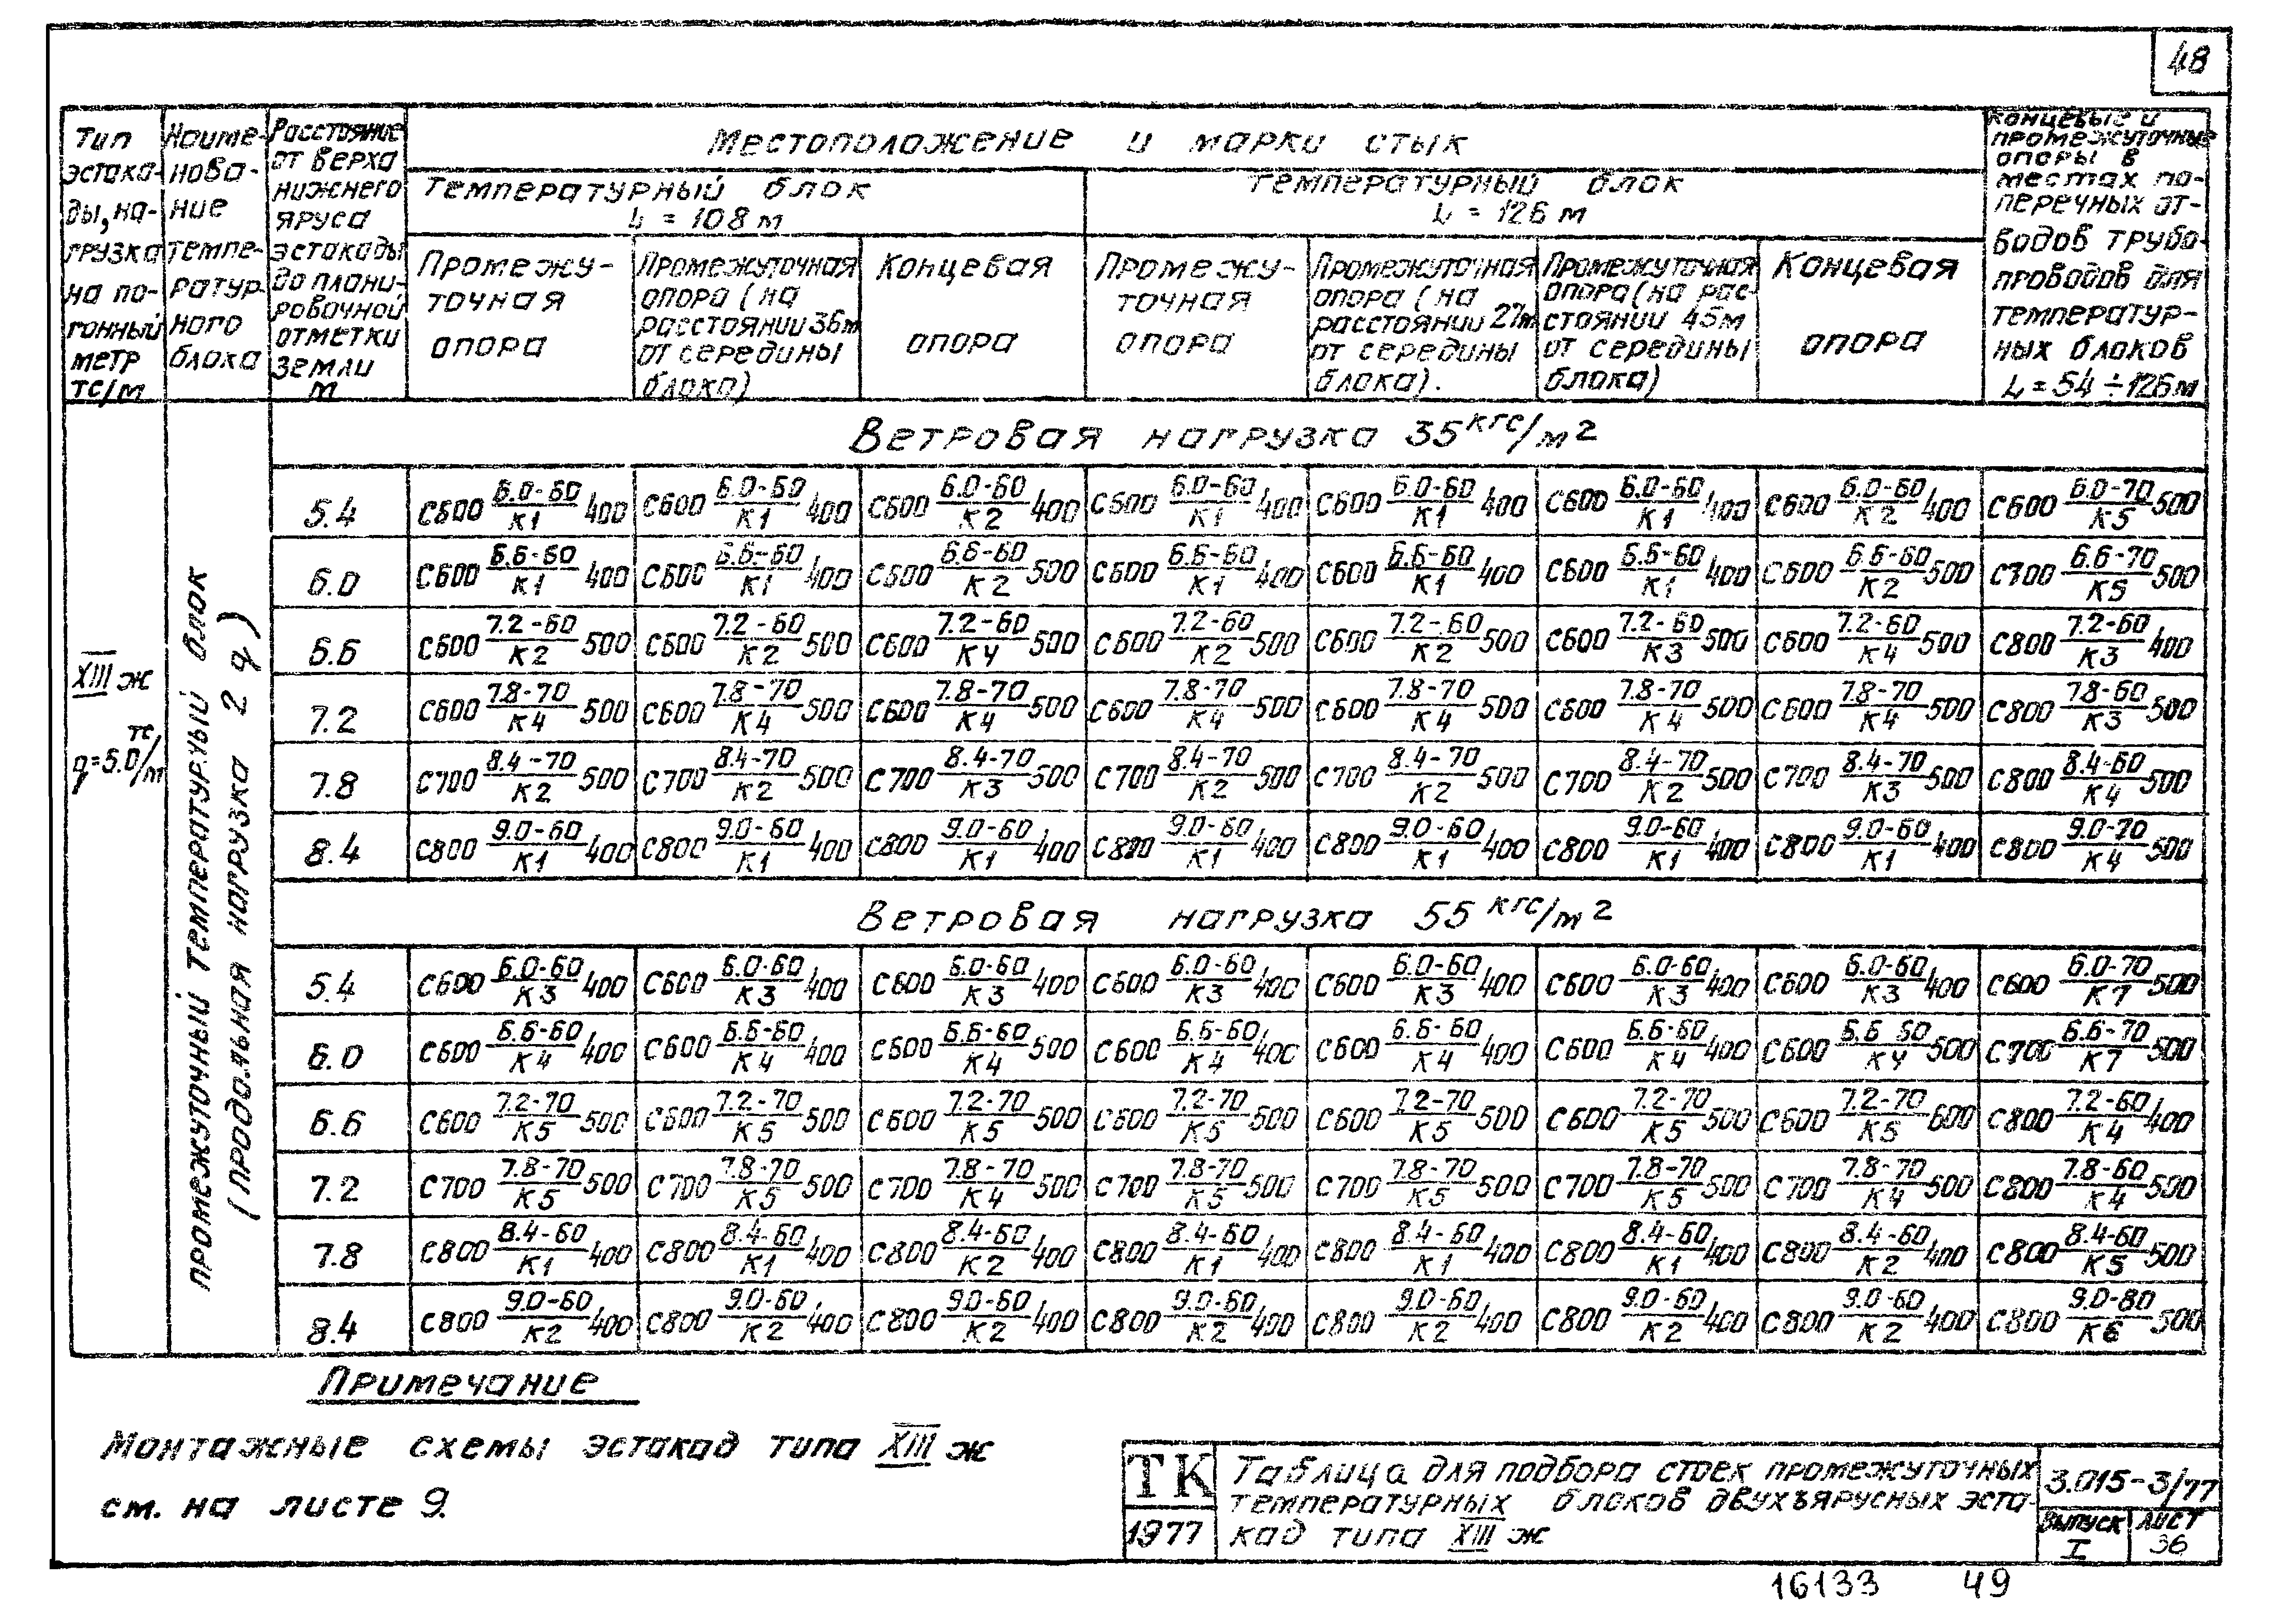 48
Тип эстакады, нагрузка на погонный метр тс/м
Наименование температурного блока
Расстояние от верха нижнего яруса эстакады до планировочной отметки земли м
Местоположение и марки стык
Температурный блок L = 108 м
Температурный блок L = 126 м
Концевые и промежуточные опоры в местах поперечных отводов трубопроводов для температурных блоков L = 54 ÷ 126 м
Промежуточная опора
Промежуточная опора (на расстоянии 36м от середины блока)
Концевая опора
Промежуточная опора
Промежуточная опора (на расстоянии 27м от середины блока).
Промежуточная опора (на расстоянии 45м от середины блока)
Концевая опора
XIII ж
q=5.0 тс/м
Промежуточный температурный блок
(продольная нагрузка 2 q)
Ветровая нагрузка 35 кгс/м2
5.4 С600 6.0-60/К1 400 С600 6.0-60/К1 400 С600 6.0-60/К2 400 С600 6.0-60/К1 400 С600 6.0-60/К1 400 С600 6.0-60/К1 400 С600 6.0-60/К2 400 С600 6.0-70/К5 500
6.0 С600 6.6-60/К1 400 С600 6.6-60/К1 400 С600 6.6-60/К2 500 С600 6.6-60/К1 400 С600 6.6-60/К1 400 С600 6.6-60/К1 400 С600 6.6-60/К2 500 С700 6.6-70/К5 500
6.6 С600 7.2-60/К2 500 С600 7.2-60/К2 500 С600 7.2-60/К4 500 С600 7.2-60/К2 500 С600 7.2-60/К2 500 С600 7.2-60/К3 500 С600 7.2-60/К4 500 С800 7.2-60/К3 400
7.2 С600 7.8-70/К4 500 С600 7.8-70/К4 500 С600 7.8-70/К4 500 С600 7.8-70/К4 500 С600 7.8-70/К4 500 С600 7.8-70/К4 500 С600 7.8-70/К4 500 С800 7.8-60/К3 500
7.8 С700 8.4-70/К2 500 С700 8.4-70/К2 500 С700 8.4-70/К3 500 С700 8.4-70/К2 500 С700 8.4-70/К2 500 С700 8.4-70/К2 500 С700 8.4-70/К3 500 С800 8.4-60/К4 500
8.4 С800 9.0-60/К1 400 С800 9.0-60/К1 400 С800 9.0-60/К1 400 С800 9.0-60/К1 400 С800 9.0-60/К1 400 С800 9.0-60/К1 400 С800 9.0-60/К1 400 С800 9.0-70/К4 500
Ветровая нагрузка 55 кгс/м2
5.4 С600 6.0-60/К3 400 С600 6.0-60/К3 400 С600 6.0-60/К3 400 С600 6.0-60/К3 400 С600 6.0-60/К3 400 С600 6.0-60/К3 400 С600 6.0-60/К3 400 С600 6.0-70/К7 500
6.0 С600 6.6-60/К4 400 С600 6.6-60/К4 400 С600 6.6-60/К4 500 С600 6.6-60/К4 400 С600 6.6-60/К4 400 С600 6.6-60/К4 400 С600 6.6 60/К4 500 С700 6.6-70/К7 500
6.6 С600 7.2-70/К5 500 С600 7.2-70/К5 500 С600 7.2-70/К5 500 С600 7.2-70/К5 500 С600 7.2-70/К5 500 С600 7.2-70/К5 500 С600 7.2-70/К5 600 С800 7.2-60/К4 400
7.2 С700 7.8-70/К5 500 С700 7.8-70/К5 500 С700 7.8-70/К4 500 С700 7.8-70/К5 500 С700 7.8-70/К5 500 С700 7.8-70/К5 500 С700 7.8-70/К4 500 С800 7.8-60/К4 500
7.8 С800 8.4-60/К1 400 С800 8.4-60/К1 400 С800 8.4-60/К2 400 С800 8.4-60/К1 400 С800 8.4-60/К1 400 С800 8.4-60/К1 400 С800 8.4-60/К2 400 С800 8.4-60/К5 500
8.4 С800 9.0-60/К2 400 С800 9.0-60/К2 400 С800 9.0-60/К2 400 С800 9.0-60/К2 400 С800 9.0-60/К2 400 С800 9.0-60/К2 400 С800 9.0-60/К2 400 С800 9.0-80/К6 500
Примечание
Монтажные схемы эстакад типа XIII ж
см. на листе 9.
ТК
1977
Таблица для подбора стоек промежуточных
температурных блоков двухъярусных эста-
кад типа XIII ж
3.015-3/77
Выпуск I
Лист 36
16133 49